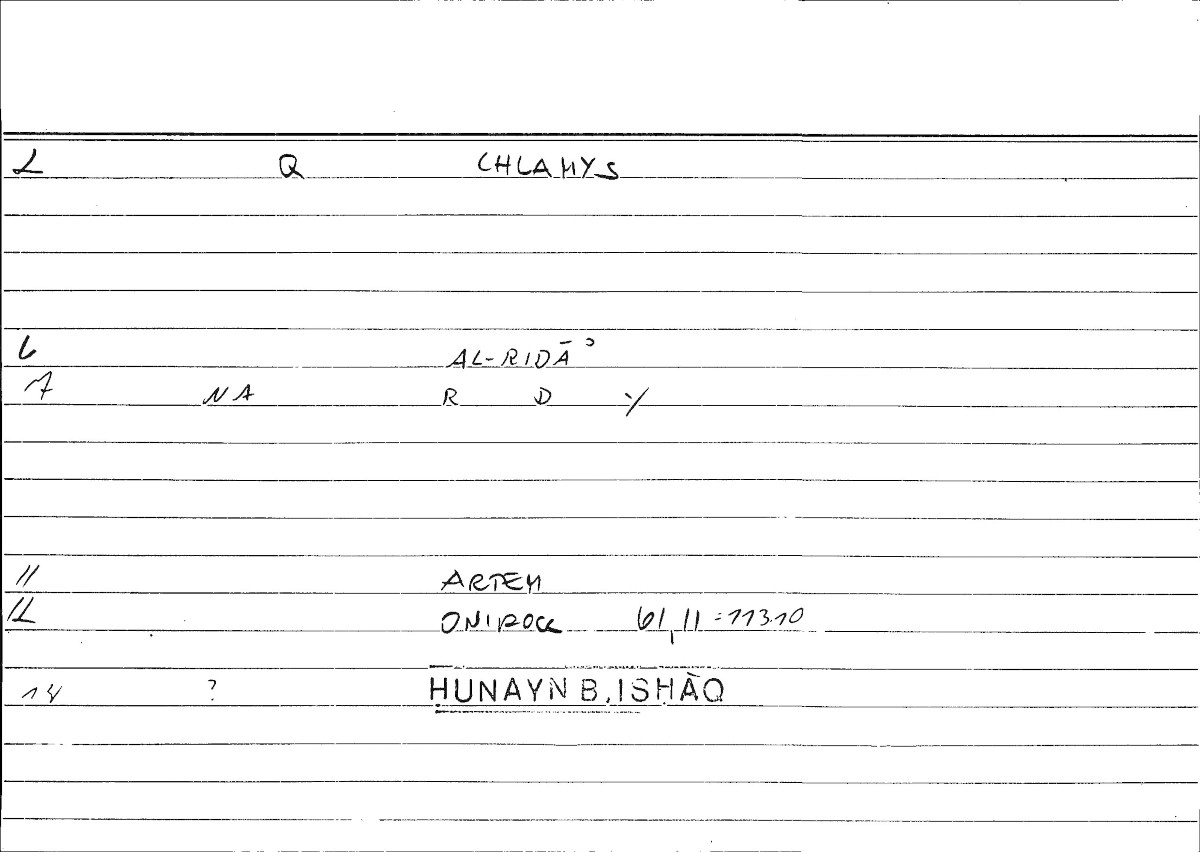 2 Q CHLAMYS
6 AL-RIDĀʾ
7 NA R D ٪
11 ARTEM
12 ONIROCR 61,11 = 113.10
14 ? ḤUNAYN B. ISḤĀQ